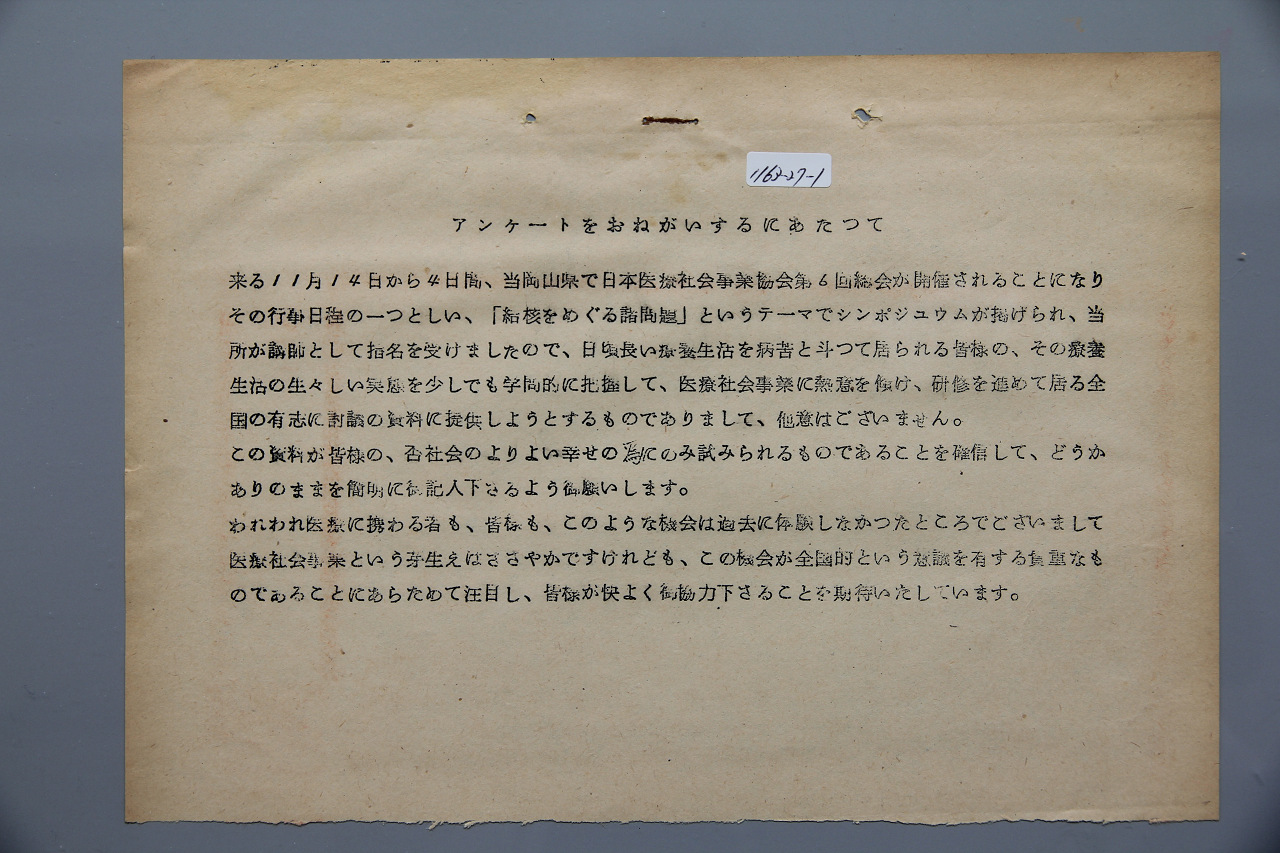 1162-27-1
アンケートをおねがいするにあたつて
来る11月14日から4日間、当岡山県で日本医療社会事業協会第6回総会が開催されることになり
その行事日程の一つとしい、「結核をめぐる諸問題」というテーマでシンポジユウムが掲げられ、当
所が講師として指名を受けましたので、日頃長い療養生活を病苦と斗つて居られる皆様の、その療養
生活の生々しい実態を少しでも学問的に把握して、医療社会事業に熱意を傾け、研修を進めて居る全
国の有志に討議の資料に提供しようとするものでありまして、他意はございません。
この資料が皆様の、否社会のよりよい幸せの為にのみ試みられるものであることを確信して、どうか
ありのままを簡明に御記入下さるよう御願いします。
われわれ医療に携わる者も、皆様も、このような機会は過去に体験しなかつたところでございまして
医療社会事業という芽生えはささやかですけれども、この機会が全国的という意議を有する貴重なも
のであることにあらためて注目し、皆様が快よく御協力下さることを期待いたしています。